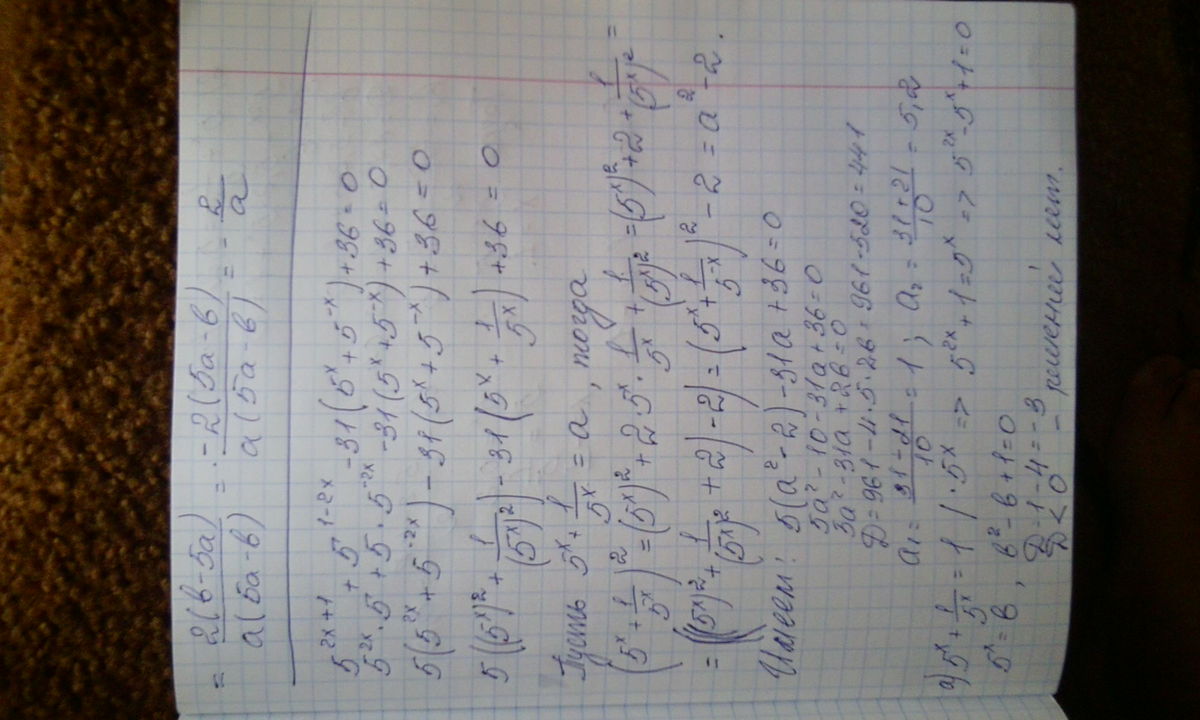 = 2(в-5а)/а(5а-в) = -2(5а-в)/а(5а-в) = -2/а
5^(2x+1) + 5^(1-2x) - 31(5^x + 5^(-x)) + 36 = 0
5^(2x)·5 + 5·5^(-2x) - 31(5^x + 5^(-x)) + 36 = 0
5(5^(2x) + 5^(-2x)) - 31(5^x + 5^(-x)) + 36 = 0
5((5^x)^2 + 1/(5^x)^2) - 31(5^x + 1/5^x) + 36 = 0
Пусть 5^x + 1/5^x = а, тогда
(5^x + 1/5^x)^2 = (5^x)^2 + 2·5^x·1/5^x + 1/(5^x)^2 = (5^x)^2 + 2 + 1/(5^x)^2 =
= ((5^x)^2 + 1/(5^x)^2 + 2) - 2) = (5^x + 1/5^x)^2 - 2 = а^2 - 2.
Имеем: 5(а^2 - 2) - 31а + 36 = 0
5а^2 - 10 - 31а + 36 = 0
5а^2 - 31а + 26 = 0
D = 961 - 4·5·26 = 961 - 520 = 441
а₁ = 31-21/10 = 1; а₂ = 31+21/10 = 5,2
а) 5^x + 1/5^x = 1 /·5^x => 5^(2x) + 1 = 5^x => 5^(2x) - 5^x + 1 = 0
5^x = в, в^2 - в + 1 = 0
D = 1 - 4 = -3
D < 0 - решений нет.